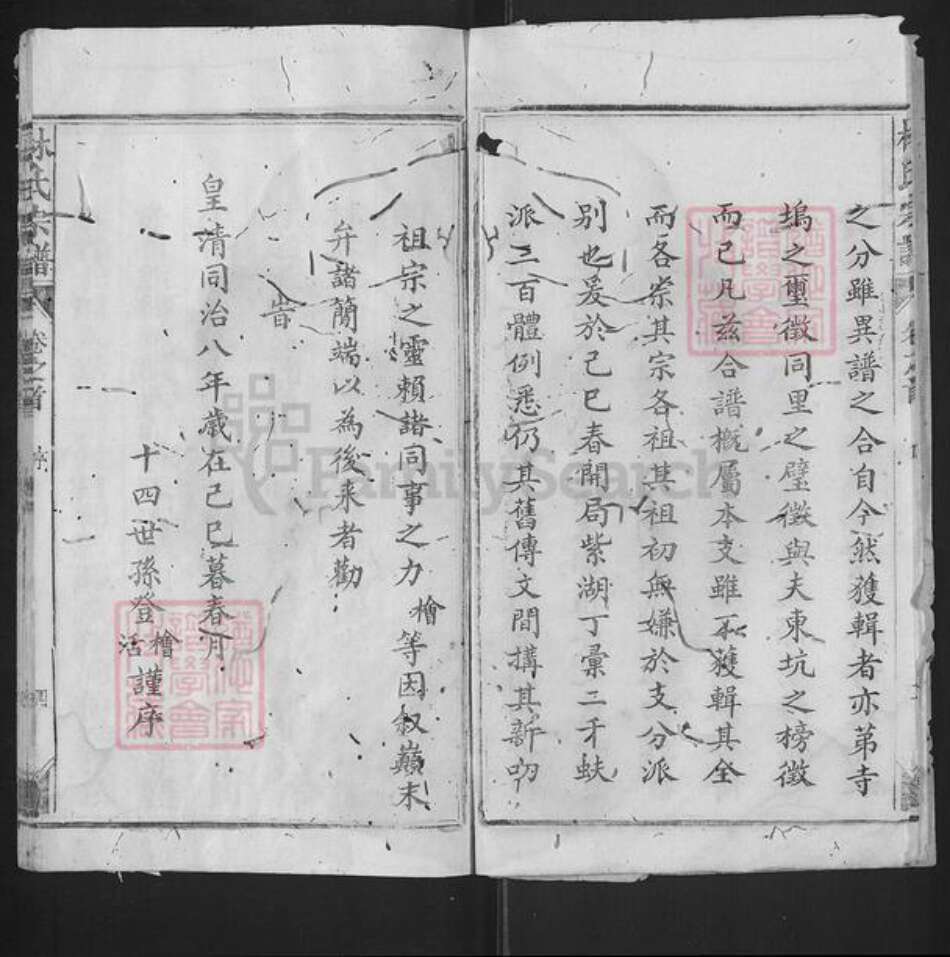 之分雖異譜之合自今然獲輯者亦苐寺
塢之璽徵同里之璧徵與夫東坑之榜徵
而已凡兹合譜概屬本支雖不獲輯其全
而各崇其宗各祖其祖初無嫌於支分派
別也爰於己巳春開局紫湖丁彙二牙蚨
派三百體例悉仍其舊傳文間搆其新叨
祖宗之靈賴諸同事之力檜等因叙巔末
弁諸簡端以為後来者勸
旹
皇清同治八年歲在己巳暮春月
十四世孫登檜活謹序
林氏宗譜 卷之首 序 四
FamilySearch